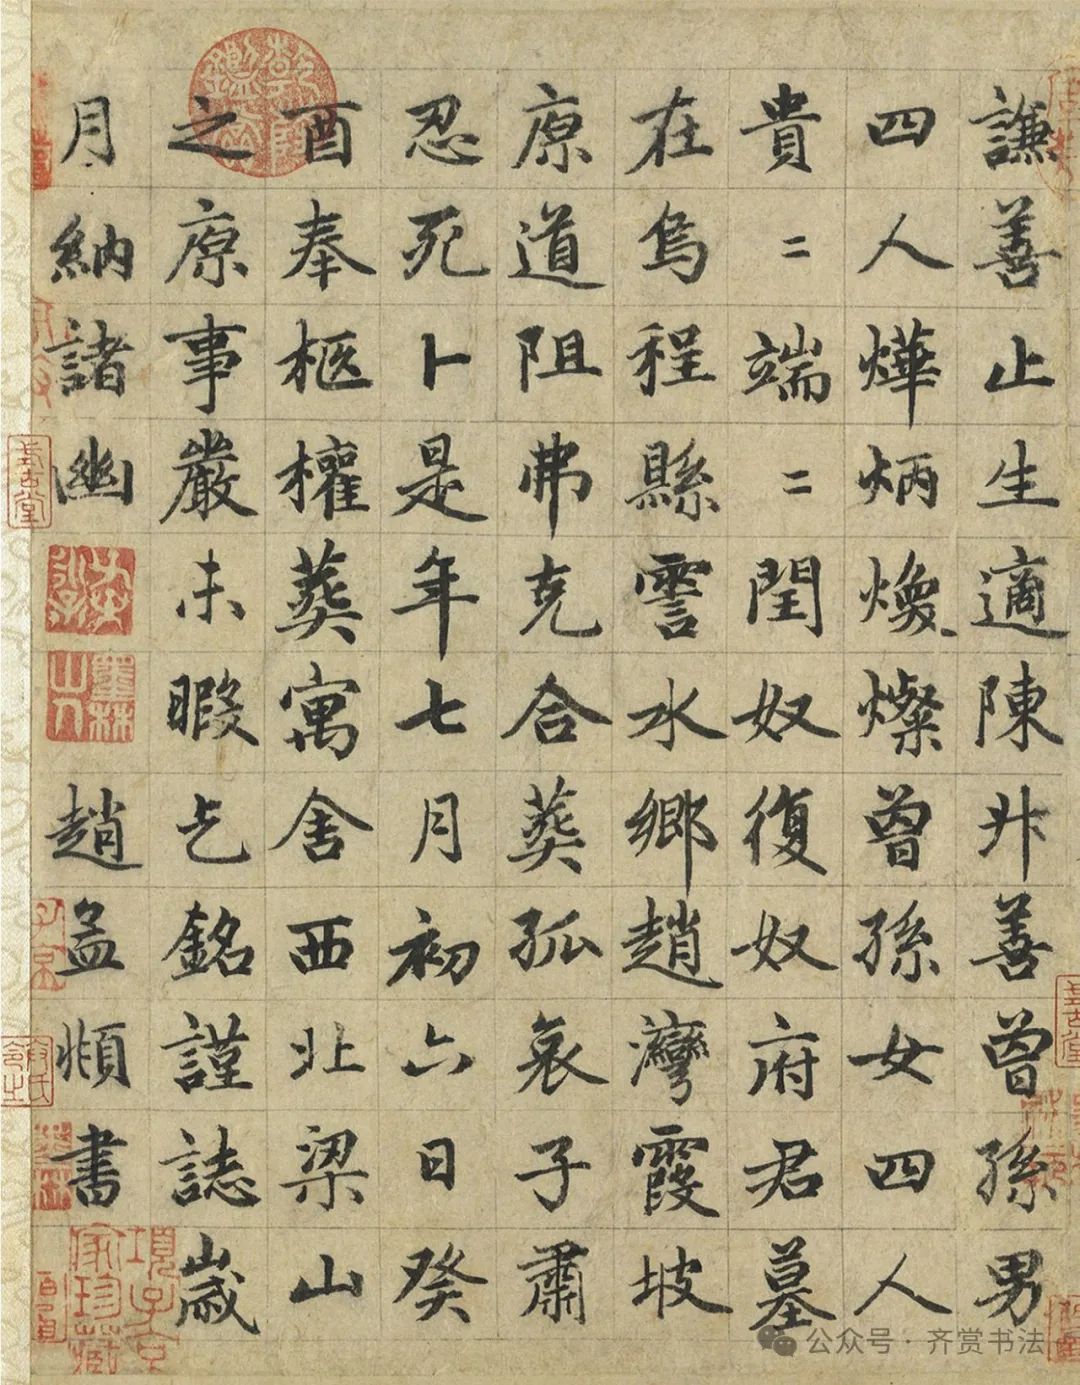 謙善止生適陳善曾孫男
四人燁炳煥燦曾孫女四人
貴二端二閏奴復奴府君墓
在烏程縣霅水鄉趙灣霞坡
原道阻弗克合葬孤哀子肅
忍死卜是年七月初六日癸
酉奉柩權葬寓舍西北梁山
之原事嚴未暇乞銘謹誌歲
月納諸幽趙孟頫書
墨林山人
項子京家珍藏
公众号·齐赏书法